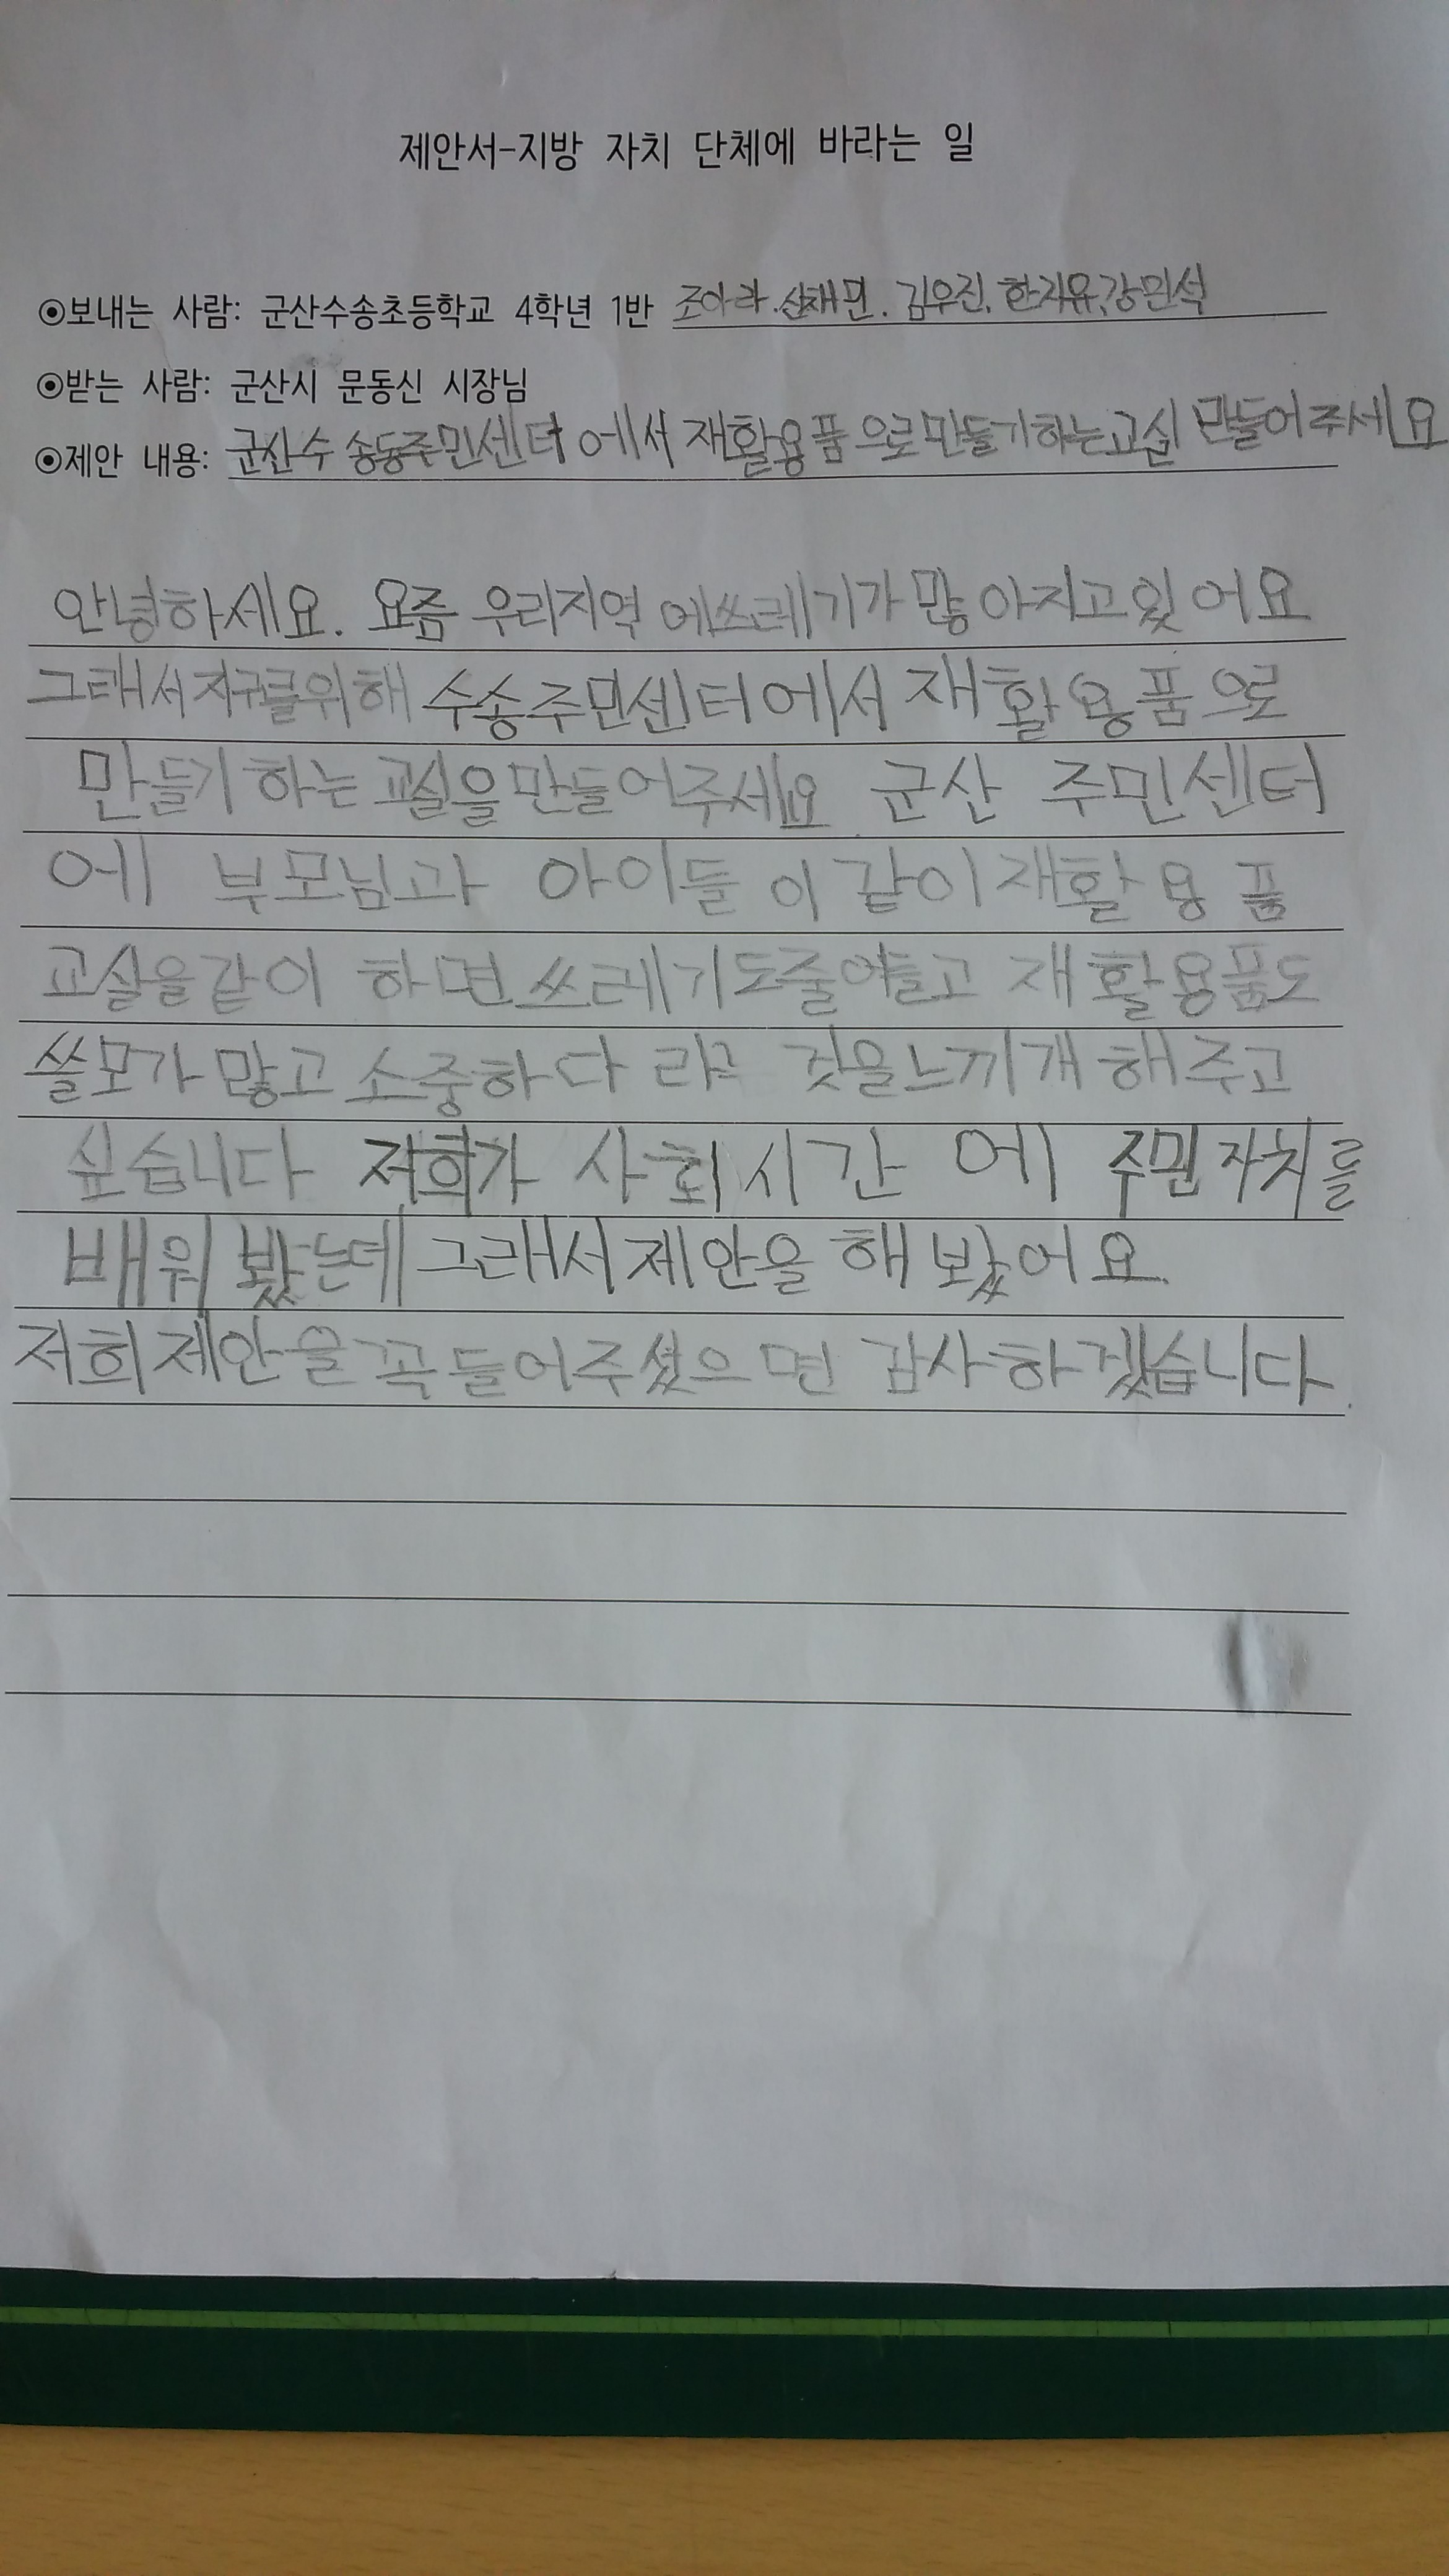 제안서-지방 자치 단체에 바라는 일
◉보내는 사람: 군산수송초등학교 4학년 1반 조아라. 신채민. 김우진. 한지유, 강민석
◉받는 사람: 군산시 문동신 시장님
◉제안 내용: 군산수송동주민센터에서 재활용품으로만들기하는교실 만들어주세요
안녕하세요. 요즘 우리지역에쓰레기가 많아지고있어요
그래서 지구를위해 수송주민센터에서 재활용품으로
만들기 하는 교실을 만들어주세요 군산 주민센터
에 부모님과 아이들이 같이 재활용품
교실을 같이 하면 쓰레기도 고 재활용품도
쓸모가 많고 소중하다 것을 느끼개 해주고
싶습니다 저희가 사회시간에 주민자치를
배워 봤는데 그래서 제안을 해 봤어요.
저희 제안을 꼭 들어주셨으면 감사하겠습니다.